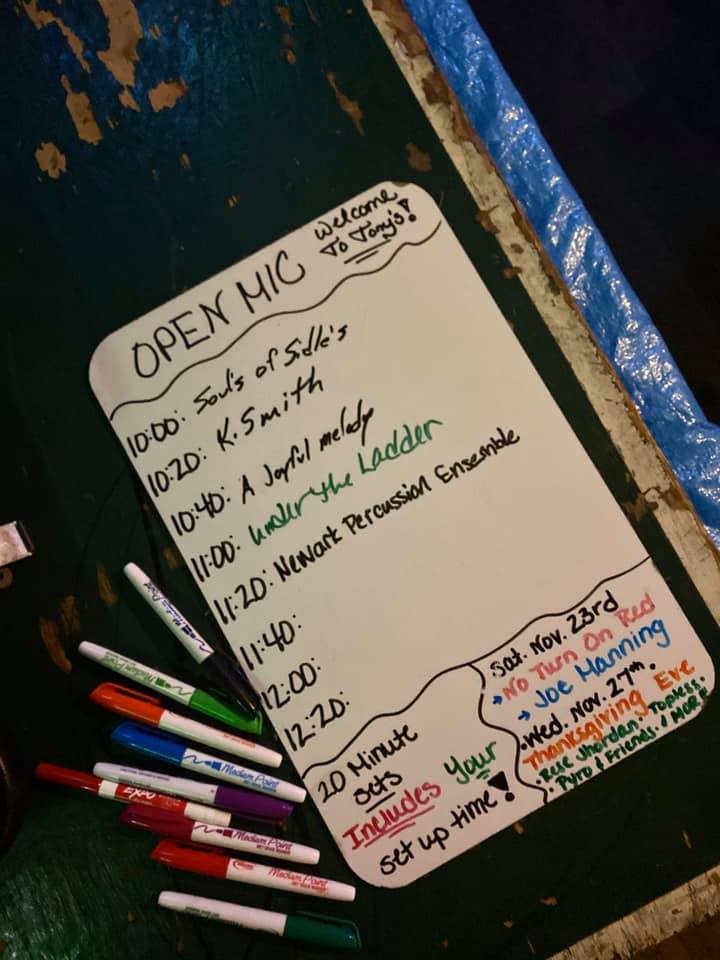 OPEN MIC
Welcome
To Tony's!
10:00: Soul's of Sidle's
10:20: K. Smith
10:40: A Joyful melody
11:00: under the Ladder
11:20: Newark Percussion Ensemble
11:40:
12:00:
12:20:
20 Minute
Sets
Includes Your
set up time!
Sat. Nov. 23rd
No Turn On Red
Joe Manning
Wed. Nov. 27th.
Thanksgiving Eve
Jhordan. Topless.
Pyro & Friends. & MORE
EXPO
Medium Point
Medium Point
Medium Point
Medium Point